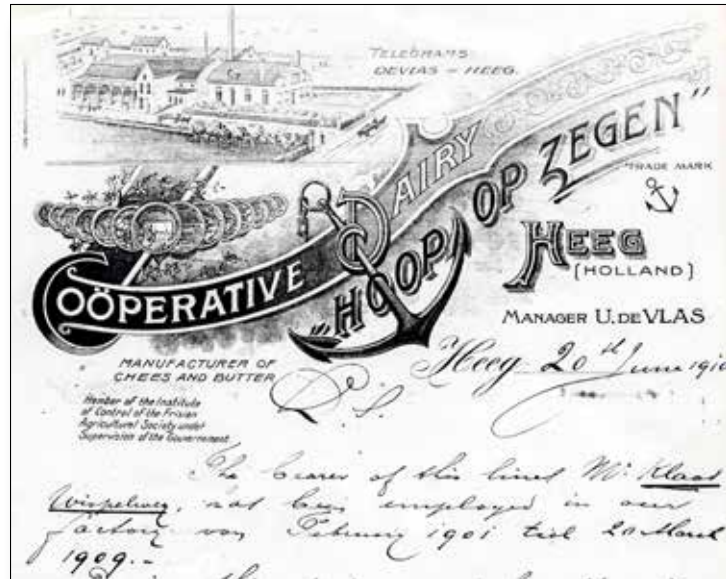 TELEGRAMS
DEVLAS - HEEG.
COÖPERATIVE DAIRY
"HOOP OP ZEGEN"
TRADE MARK
HEEG
(HOLLAND)
MANAGER U. DE VLAS
MANUFACTURER OF
CHEES AND BUTTER
Member of the Institute
of Control of the Frisian
Agricultural Society under
Supervision of the Government
Heeg 20th June 191
The bearer of this lines Mr. Klaas
Wispelwey, has been employed in our
factory von February 1901 till 20 March
1909.-